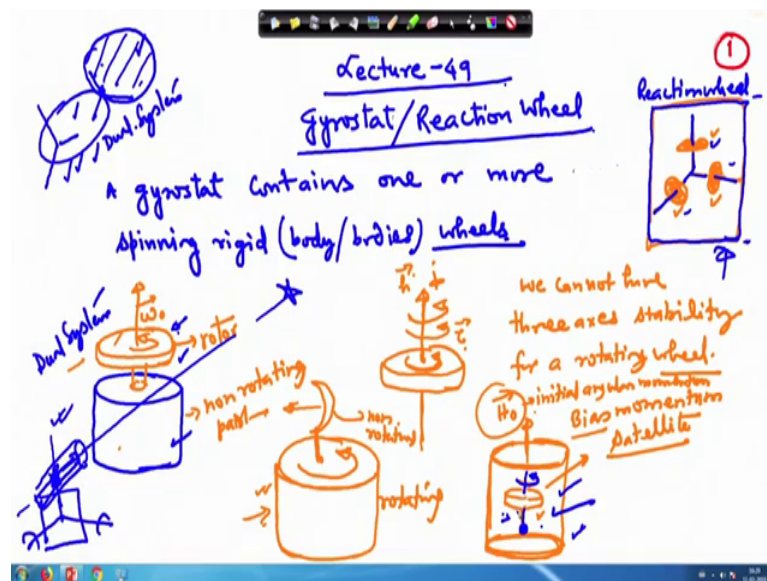 Lecture-49
Gyrostat/Reaction Wheel
1
Reaction wheel
Dual System
A gyrostat contains one or more
spinning rigid (body/bodies) wheels
Dual System
ω₀
rotor
non rotating
part
non
rotating
rotating
h
we cannot have
three axes stability
for a rotating wheel.
H₀
initial angular momentum
Bias momentum
satellite